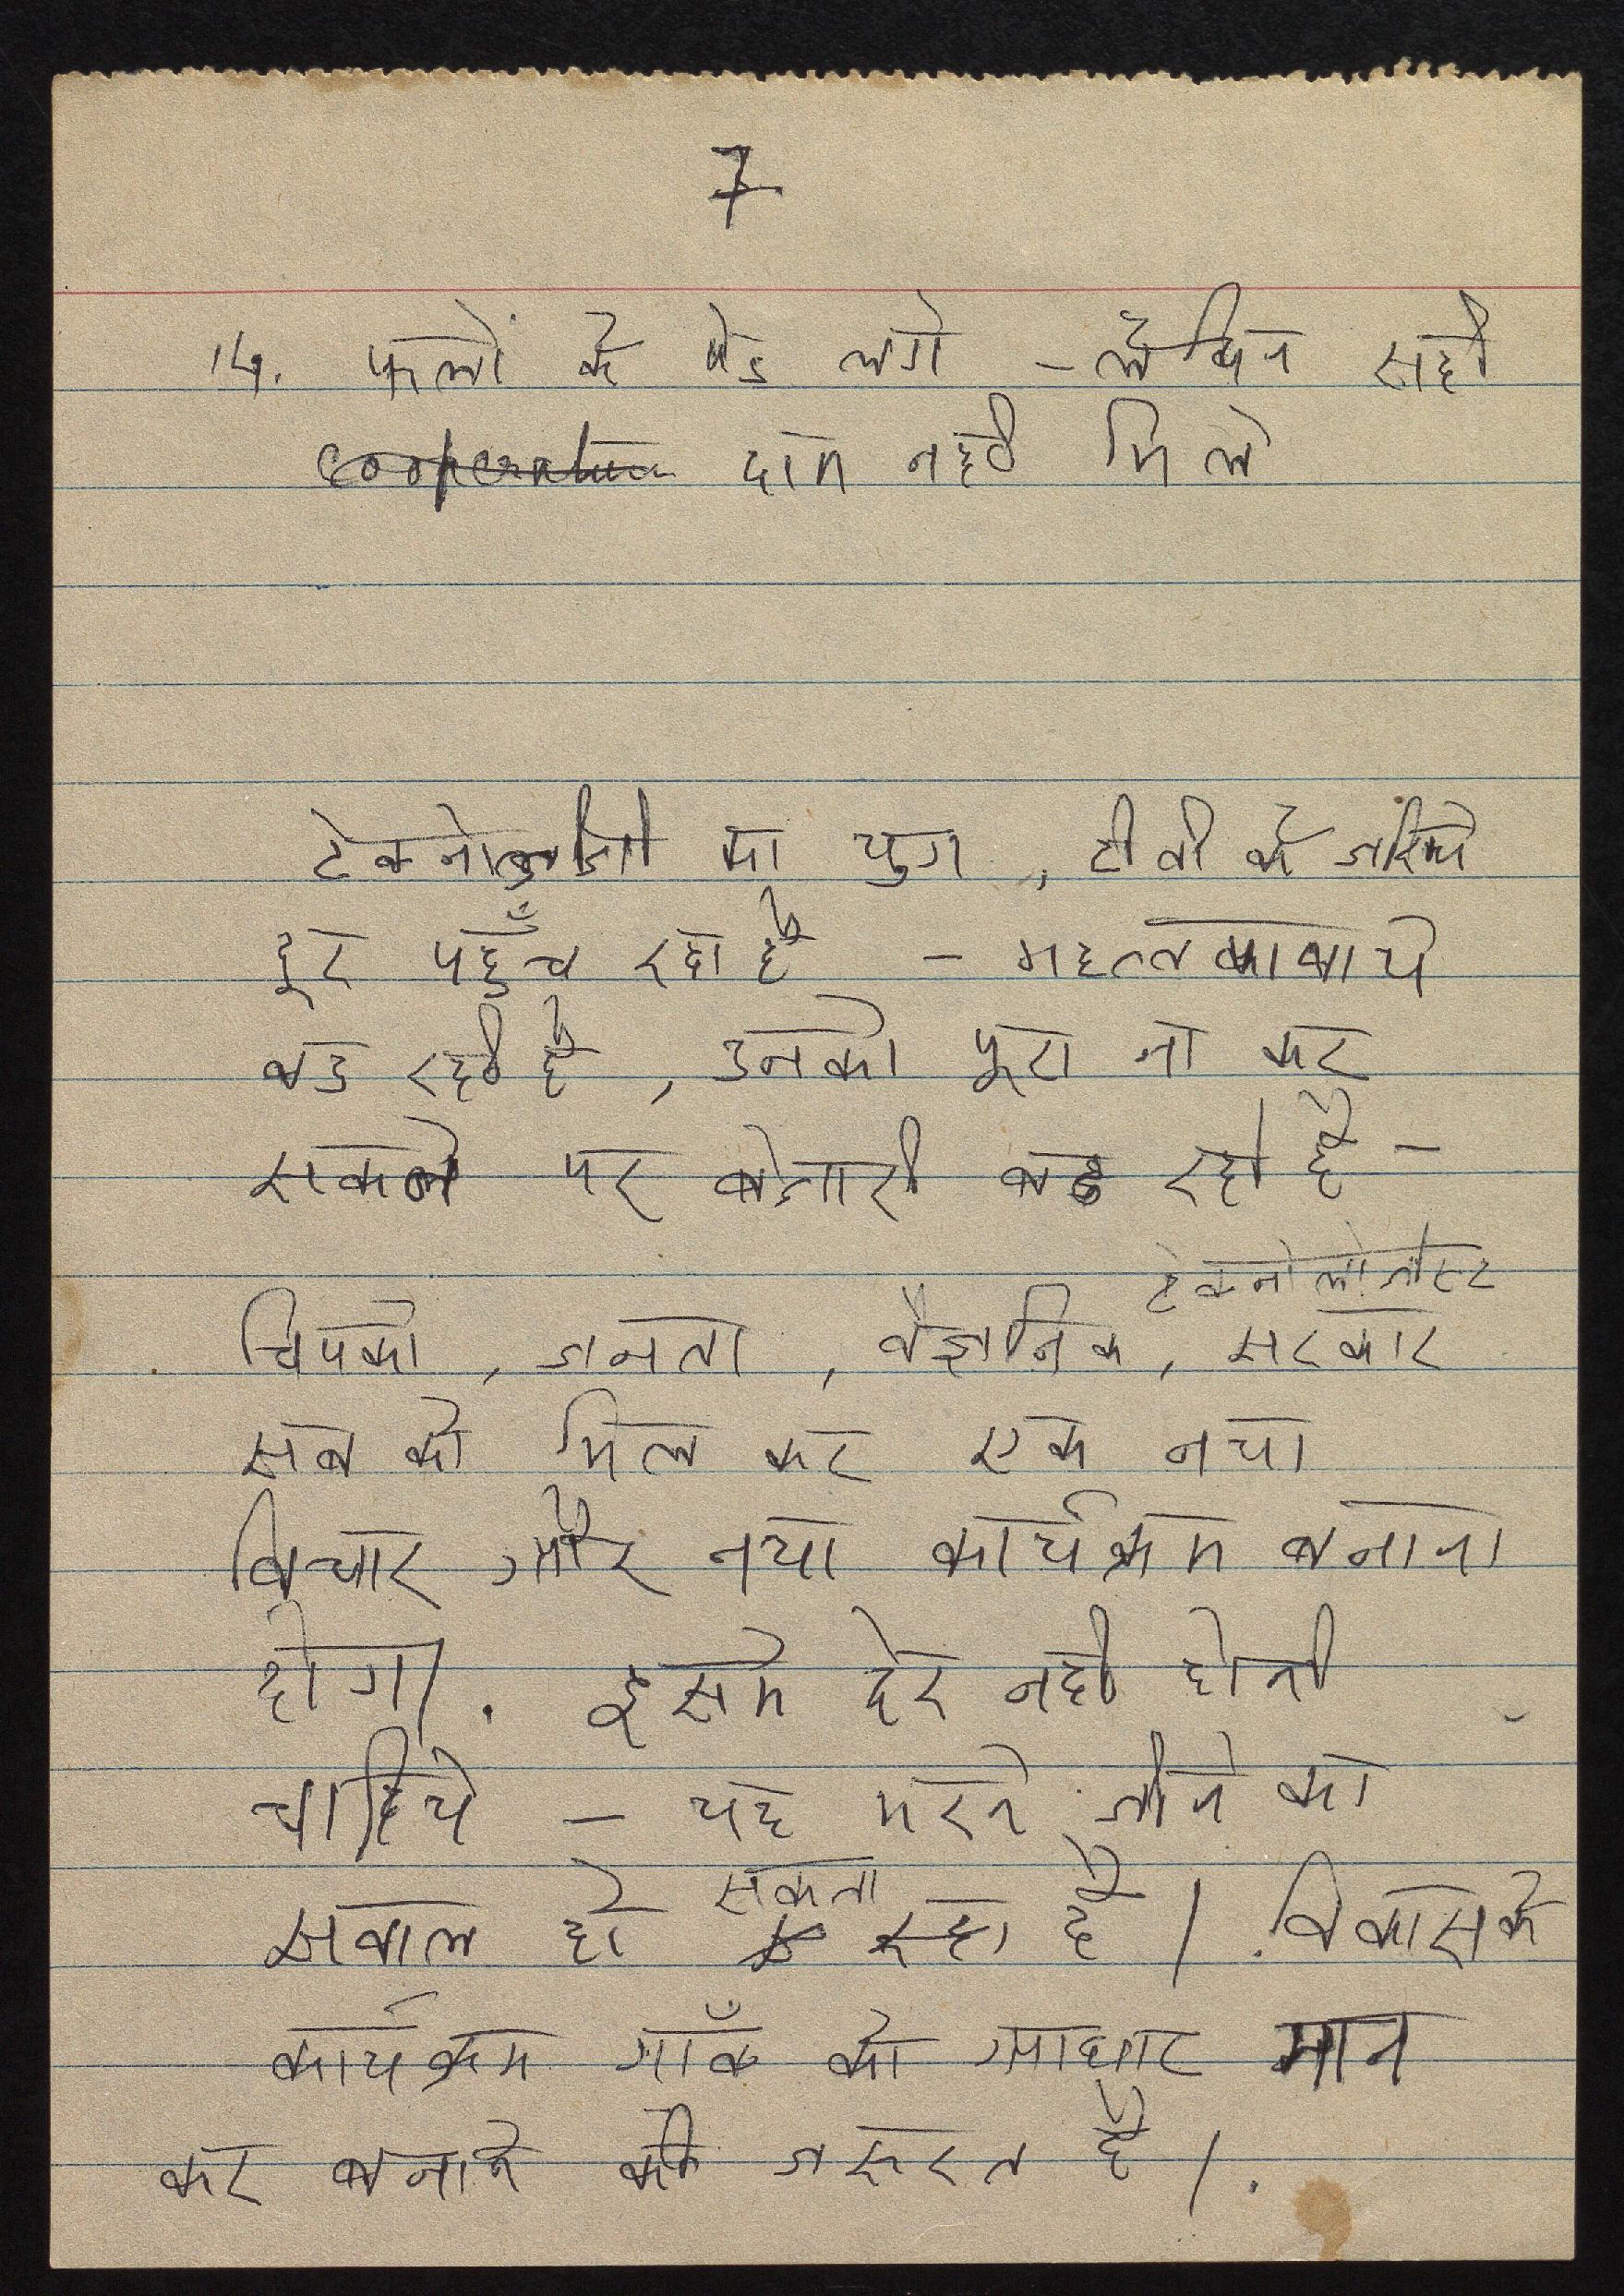 7
14. फलों के पेड लगे - लेकिन सही
cooperative दाम नही मिले
टेकनोलजी का युग, टी वी के जरिये
दूर पहुँच रहा है - महत्वकाक्षाये
बड रही है, उनको पूरा ना कर
सकने पर बेजारी बढ रही है -
टेकनोलोजीस्ट
चिपको, जनता, वैज्ञानिक, सरकार
सब को मिल कर एक नया
विचार और नया कार्यक्रम बनाना
होगा. इसमे देर नही होनी
चाहिये - यह मरने जीने का
सकता
सवाल हो रहा है। विकास के
कार्यक्रम गाँव को आधार मान
कर बनाने की जरूरत है।.